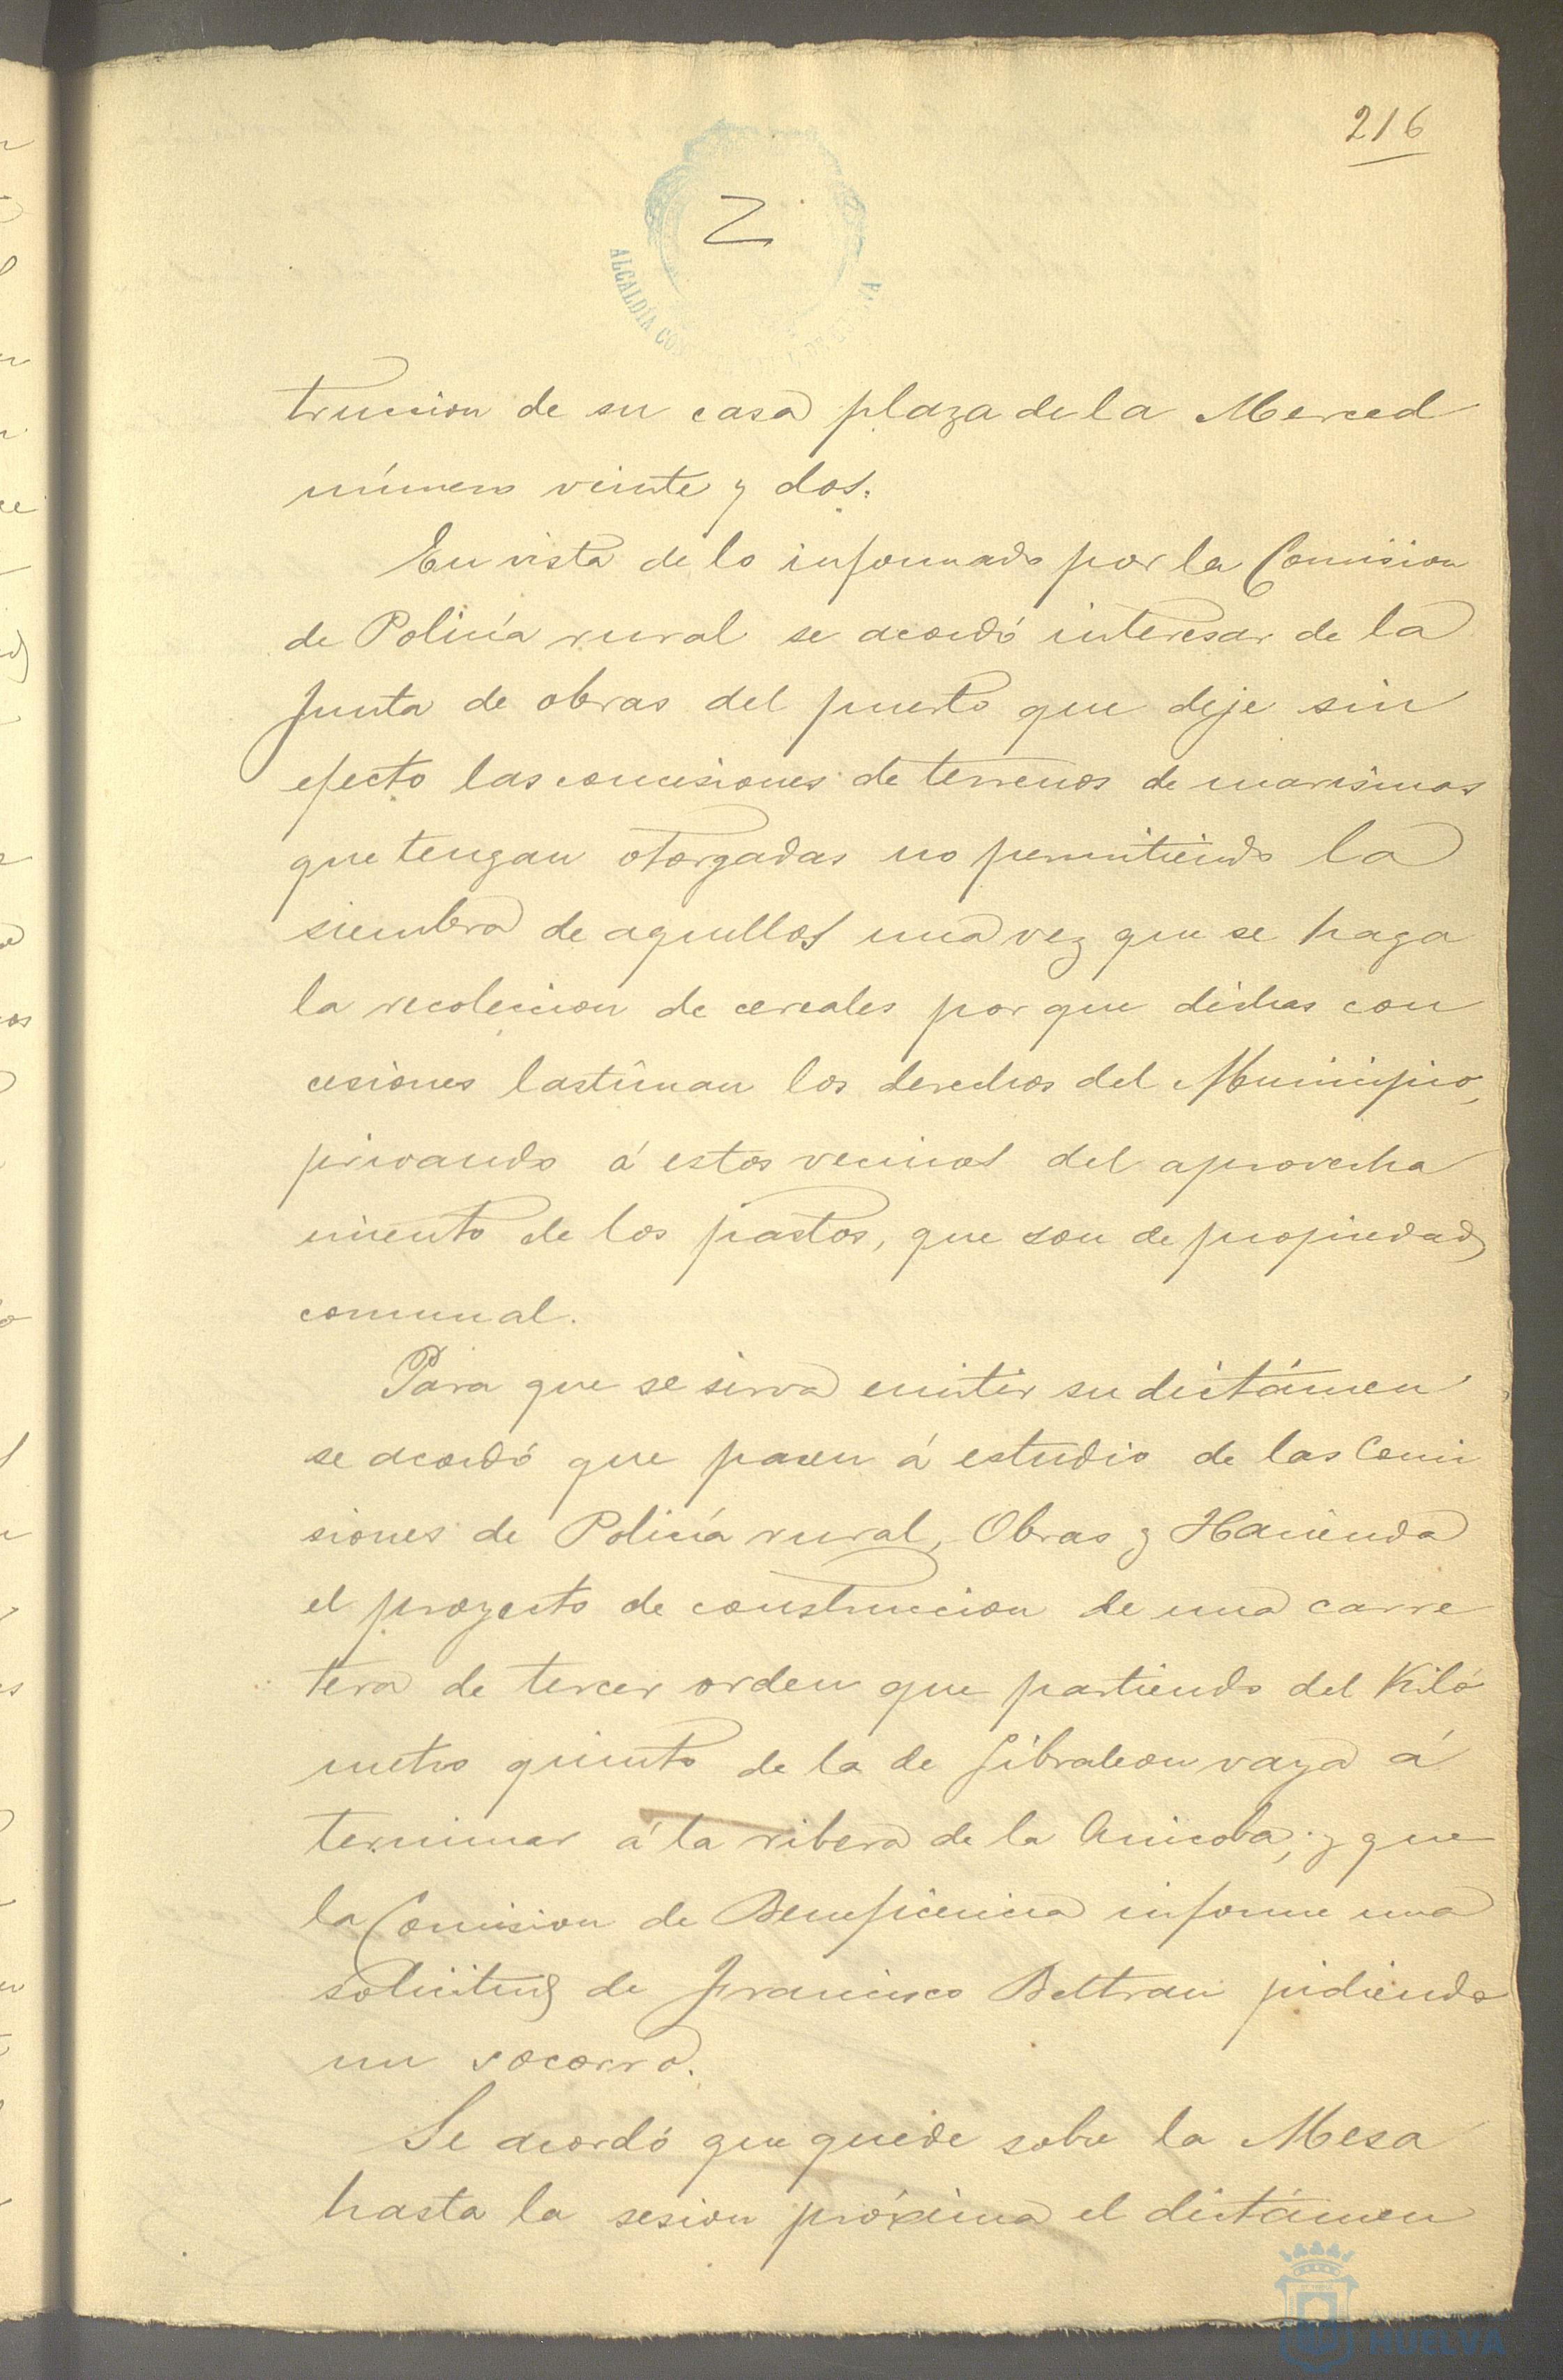 216
ALCALDÍA CON
truccion de su casa plaza de la Merced
número veinte y dos.
En vista de lo informado por la Comision
de Policía rural se acordó interesar de la
Junta de obras del puerto que deje sin
efecto las concesiones de terrenos de marismas
que tengan otorgadas no permitiendo la
siembra de aquellos una vez que se haga
la recoleccion de cereales por que dichas con
cesiones lastiman los derechos del Municipio,
privando á estos vecinos del aprovecha
miento de los pastos, que son de propiedad
comunal.
Para que se sirva emitir su dictámen
se acordó que pasen á estudio de las Comi
siones de Policía rural, Obras y Hacienda
el proyecto de construccion de una carre
tera de tercer orden que partiendo del Kiló
metro quinto de la de Gibraleon vaya á
terminar á la ribera de la Anicoba; y que
la Comision de Beneficencia informe una
solicitud de Francisco Beltran pidiendo
un socorro.
Se acordó que quede sobre la Mesa
hasta la sesion próxima el dictámen
HUELVA